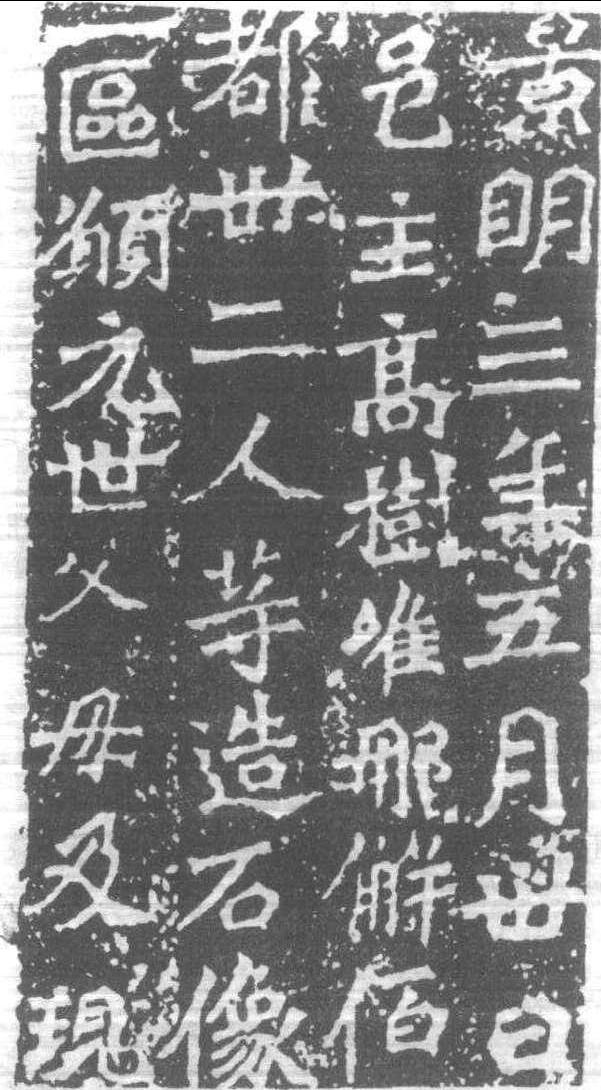 景明三年五月卅日
邑主高樹唯那解佰
都卅二人等造石像
一區願元世父母及現